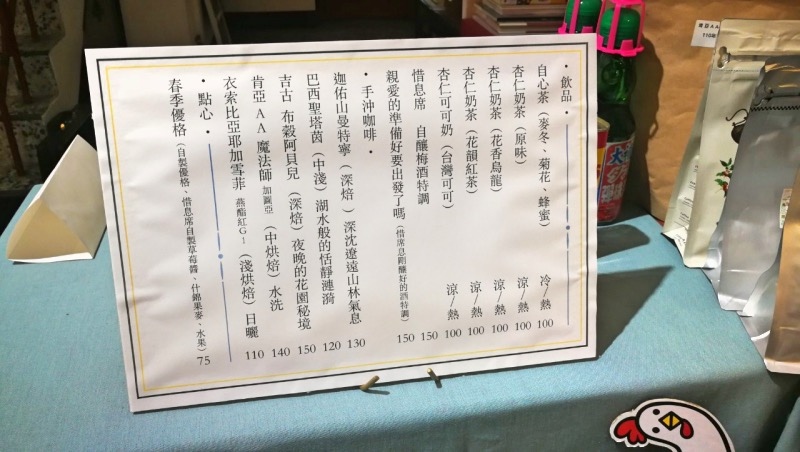 ・飲品・
自心茶（麥冬、菊花、蜂蜜） 冷/熱 100
杏仁奶茶（原味） 涼/熱 100
杏仁奶茶（花香烏龍） 涼/熱 100
杏仁奶茶（花韻紅茶） 涼/熱 100
杏仁可可奶（台灣可可） 涼/熱 100
惜息席 自釀梅酒特調 150
親愛的準備好要出發了嗎（惜席息剛釀好的酒特調） 150
・手沖咖啡・
迦佑山曼特寧（深焙）深沈遼遠山林氣息 130
巴西聖塔茵（中淺）湖水般的恬靜漣漪 120
吉古 布穀阿貝兒（深焙）夜晚的花園秘境 150
肯亞AA 魔法師 加圖亞（中烘焙）水洗 140
衣索比亞耶加雪菲 燕酯紅G1（淺烘焙）日曬 110
・點心・
春季優格（自製優格、惜息席自製草莓醬、什錦果麥、水果） 75